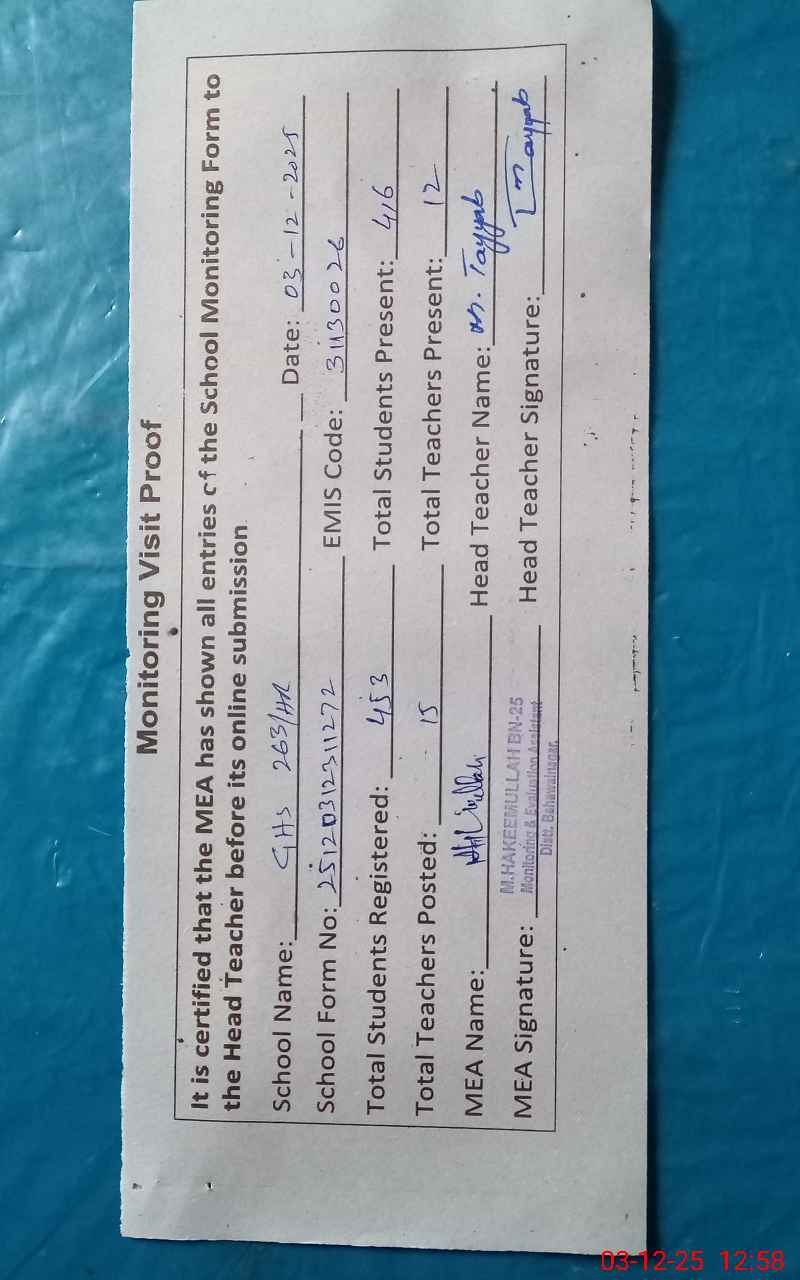 Monitoring Visit Proof
It is certified that the MEA has shown all entries of the School Monitoring Form to
the Head Teacher before its online submission
School Name: GHS 263/HR Date: 03-12-2025
School Form No: 25120312311272 EMIS Code: 31130026
Total Students Registered: 453 Total Students Present: 416
Total Teachers Posted: 15 Total Teachers Present: 12
MEA Name: Head Teacher Name: M. Tayyab
M.HAKEEMULLAH BN-25
MEA Signature: Head Teacher Signature: Tayyab
Monitoring & Evaluation Assistant
Distt. Bahawalnagar
03-12-25 12:58